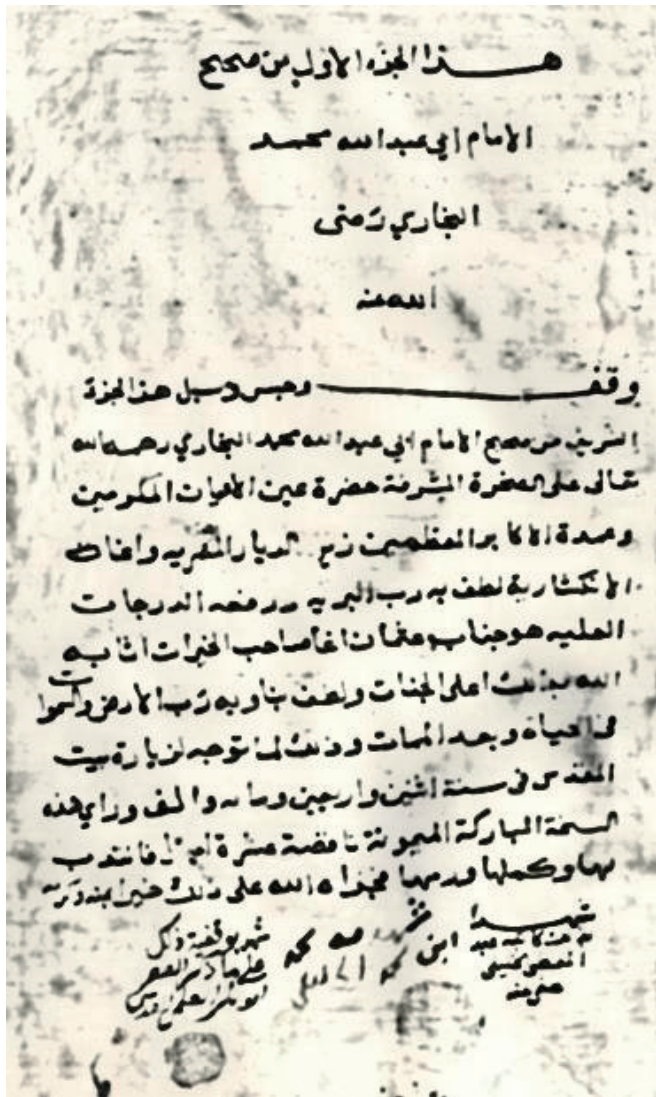 هذا الجزء الاول من صحيح
الامام ابي عبدالله محمد
البخاري رضى
الله عنه
وقف وحبس وسبل هذا الجزء
الشريف من صحيح الامام ابي عبدالله محمد البخاري رحمه الله
تعالى على الصخرة المشرفة حضرة عين الاعيان المكرمين
وعمدة الاكابر المعظمين الديار المصريه واغات
الانكشارية لطف به رب البريه ورفعه الدرجات
العليه هو جناب عثمان اغا صاحب الخيرات اثابه
الله بذلك اعلى الجنات ولطف بنا وبه رب الارض والسموات
فى الحياة وبعد الممات وذلك لما توجه لزيارة بيت
المقدس فى سنة اثنين واربعين ومايه والف وراي هذه
النسخة المباركة الميمونة ناقصة عشرة فانتدب
لها وكملها ورمها فجزاه الله على ذلك خيرا بمنه وكرمه
شهد
شهد بوقفية ذلك